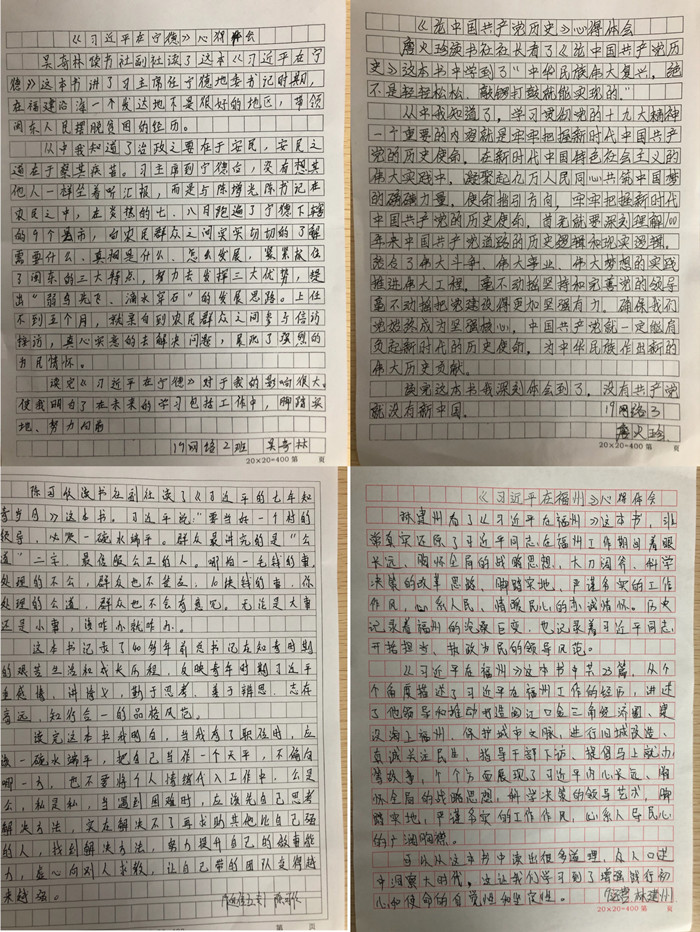 《习近平在宁德》心得体会
吴奇林读书社副社读了这本《习近平在宁
德》这本书讲了习主席任宁德地委书记时期,
在福建沿海一个发达地不是很好的地区,带领
闽东人民摆脱贫困的经历。
从中我知道了治政之要在于安民,安民之
道在于察其疾苦。习主席到宁德台,没有想其
他人一样坐着听汇报,而是与陈增光陈书记在
农民之中,在炎热的七、八月跑遍了宁德下辖
的9个县市,向农民群众之间实实切切的了解
需要什么、真相是什么、怎么发展,紧紧抓住
了闽东的三大特点,努力去发挥三大优势,提
出“弱鸟先飞、滴水穿石”的发展思路。上任
不到三个月,就亲自到农民群众之间参与信访
接访,真心实意的去解决问题,展现了强烈的
为民情怀。
读完《习近平在宁德》对于我的影响很大。
使我明白了在未来的学习包括工作中,脚踏实
地、努力向前
17网络2班 吴奇林
20×20=400 第 页
《论中国共产党历史》心得体会
唐火珍读书社社长看了《论中国共产党历
史》这本书中学到了“中华民族伟大复兴,绝
不是轻轻松松、敲锣打鼓就能实现的。”
从中我知道了,学习贯彻党的十九大精神
一个重要的内容就是牢牢把握新时代中国共产
党的历史使命,在新时代中国特色社会主义的
伟大实践中,凝聚起亿万人民同心共筑中国梦
的磅礴力量。使命指引方向,牢牢把握新时代
中国共产党的历史使命,首先就要深刻理解100
年来中国共产党道路的历史逻辑和现实逻辑。
结合了伟大斗争、伟大事业、伟大梦想的实践
推进伟大工程,毫不动摇坚持和完善党的领导
毫不动摇把党建设得更加坚强有力。确保我们
党始终成为坚强核心,中国共产党就一定能肩
负起新时代的历史使命,为中华民族作出新的
伟大历史贡献。
读完这本书我深刻体会到了,没有共产党
就没有新中国。 17网络3
唐火珍
20×20=400 第 页
陈可欣读书社副社读了《习近平的七年知
青岁月》这本书。习近平说:“要当好一个村的
领导,必要一碗水端平。群众最讲究的是“公
道”二字,最信服公正的人。哪怕一毛钱的事,
处理的不公,群众也不答应;10块钱的事,你
处理的公道,群众也不会有意见。无论是大事
还是小事,该咋办就咋办。
这本书记载了40多年前总书记在知青时期
的艰苦生活和成长历程,反映青年时期习近平
重感情、讲情义,勤于思考、善于辨思、志存
高远、知行合一的品格风范。
读完这本书我明白,当我有了职位时,应
该一碗水端平,把自己当作一个天平,不偏向
哪一方,也不要将个人情绪代入工作中,公是
公,私是私,当遇到困难时,应该先自己思考
解决方法,实在解决不了再求助其他比自己强
的人,找到解决方法,努力提升自己的做事能
力,虚心向对人求教,让自己带的团队变得越
来越强。
第 页
《习近平在福州》心得体会
林建州看了《习近平在福州》这本书,非
常真实还原了习近平同志在福州工作期间着眼
长远、胸怀全局的战略思想、大刀阔斧、科学
决策的改革思路、脚踏实地、严谨务实的工作
作风,心系人民、情暖民心的赤诚情怀。历史
记录着福州的沧桑巨变,也记录着习近平同志
开拓担当、执政为民的领导风范。
《习近平在福州》这本书中共23篇,从个
个角度描述了习近平在福州工作的经历,讲述
了他领导和推动打造闽江口金三角经济圈、建
设海上福州、保护城中文脉、进行旧城改造、
真诚关注民生、指导干部下访、提倡马上就办
等故事,个个方面展现了习近平内心长远、胸
怀全局的战略思想,科学决策的领导艺术,脚
踏实地、严谨务实的工作作风,心系人民民心
的广阔胸襟。
可以从这本书中读出很多道理,众人口述
中洞察大时代,这让我们学习到了增强践行初
心和使命的自觉性和坚定性。 林建州
20×20=400 第 页